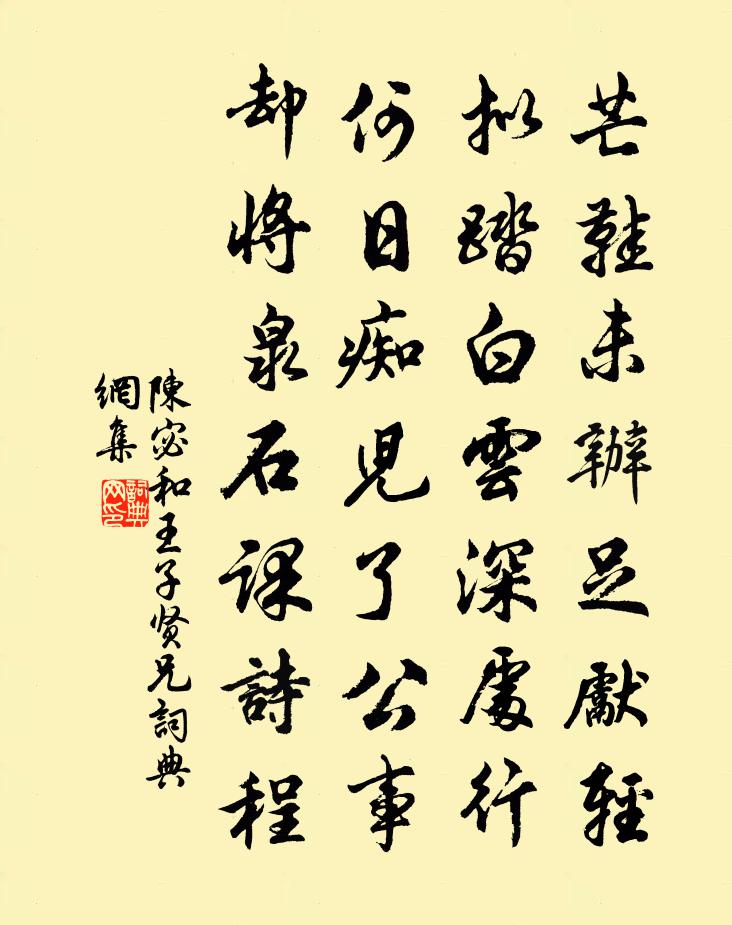 芒鞋未辦足獻輕
擬踏白雲深處行
何日痴兒了公事
却將泉石課詩程
陳宓和王子贤兄詞典
網集
詞典
网印